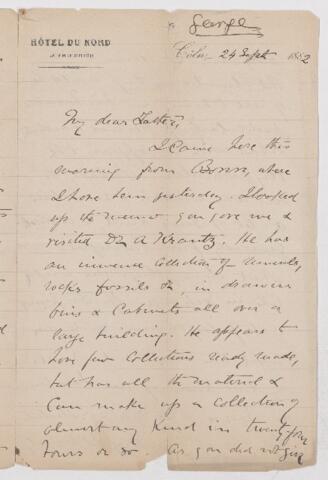 George
HÔTEL DU NORD
Cöln, 24 Sept 1882
My dear Father,
I came here this
morning from Bonn, where
I have been yesterday. I looked
up the you gave me &
visited Dr A Krantz. He has
an immense collection of minerals,
rocks fossils &c, in drawers
bins & cabinets all over a
large building. He appears to
have few collections ready made,
but has all the material &
can make up a collection of
almost any kind in twenty four
hours or so. As you did not give